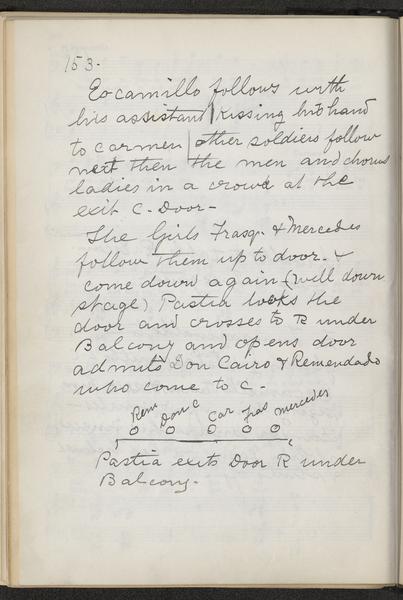 153.
Escamillo follows with
his assistant | kissing his hand
to Carmen | other soldiers follow
next then the men and chorus
ladies in a crowd at the
exit C. Door -
The Girls Frasq. & Mercedes
follow them up to door. &
come down again (well down
stage) Pastia locks the
door and crosses to R under
Balcony and opens door
admits Don Cairo & Remendado
who come to C -
Rem Don C Car Fras Mercedes
Pastia exits Door R under
Balcony.